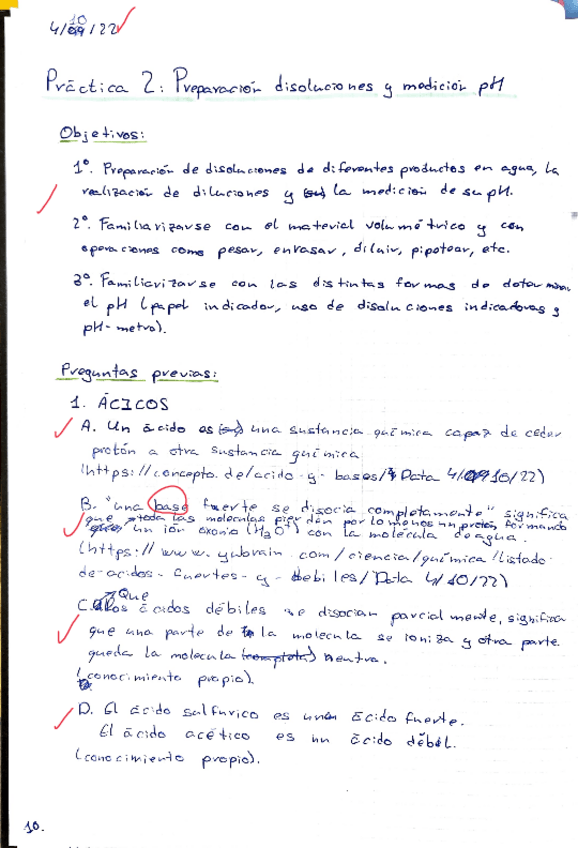 4/10/22
Práctica 2: Preparación disoluciones y medición pH
Objetivos:
1º. Preparación de disoluciones de diferentes productos en agua, la
realización de diluciones y la medición de su pH.
2º. Familiarizarse con el material volumétrico y con
operaciones como pesar, enrasar, diluir, pipetear, etc.
3º. Familiarizarse con las distintas formas de determinar
el pH (papel indicador, uso de disoluciones indicadoras y
pH-metro).
Preguntas previas:
1. ÁCICOS
A. Un ácido es una sustancia química capaz de ceder
protón a otra sustancia química
(https://concepto.de/acido-y-bases/ Data 4/10/22)
B. "una base fuerte se disocia completamente" significa
que toda las moleculas pierdan por lo menos un protón, formando
un ión oxonio (H3O+) con la molécula de agua.
(https://www.yubrain.com/ciencia/química/listado-
de-acidos-fuertes-y-debiles/Data 4/10/22)
C. Que los ácidos débiles se disocian parcialmente, significa
que una parte de la molécula se ioniza y otra parte
queda la molécula neutra.
(conocimiento propio).
D. El ácido sulfúrico es un ácido fuerte.
El ácido acético es un ácido débil.
(conocimiento propio).
10.